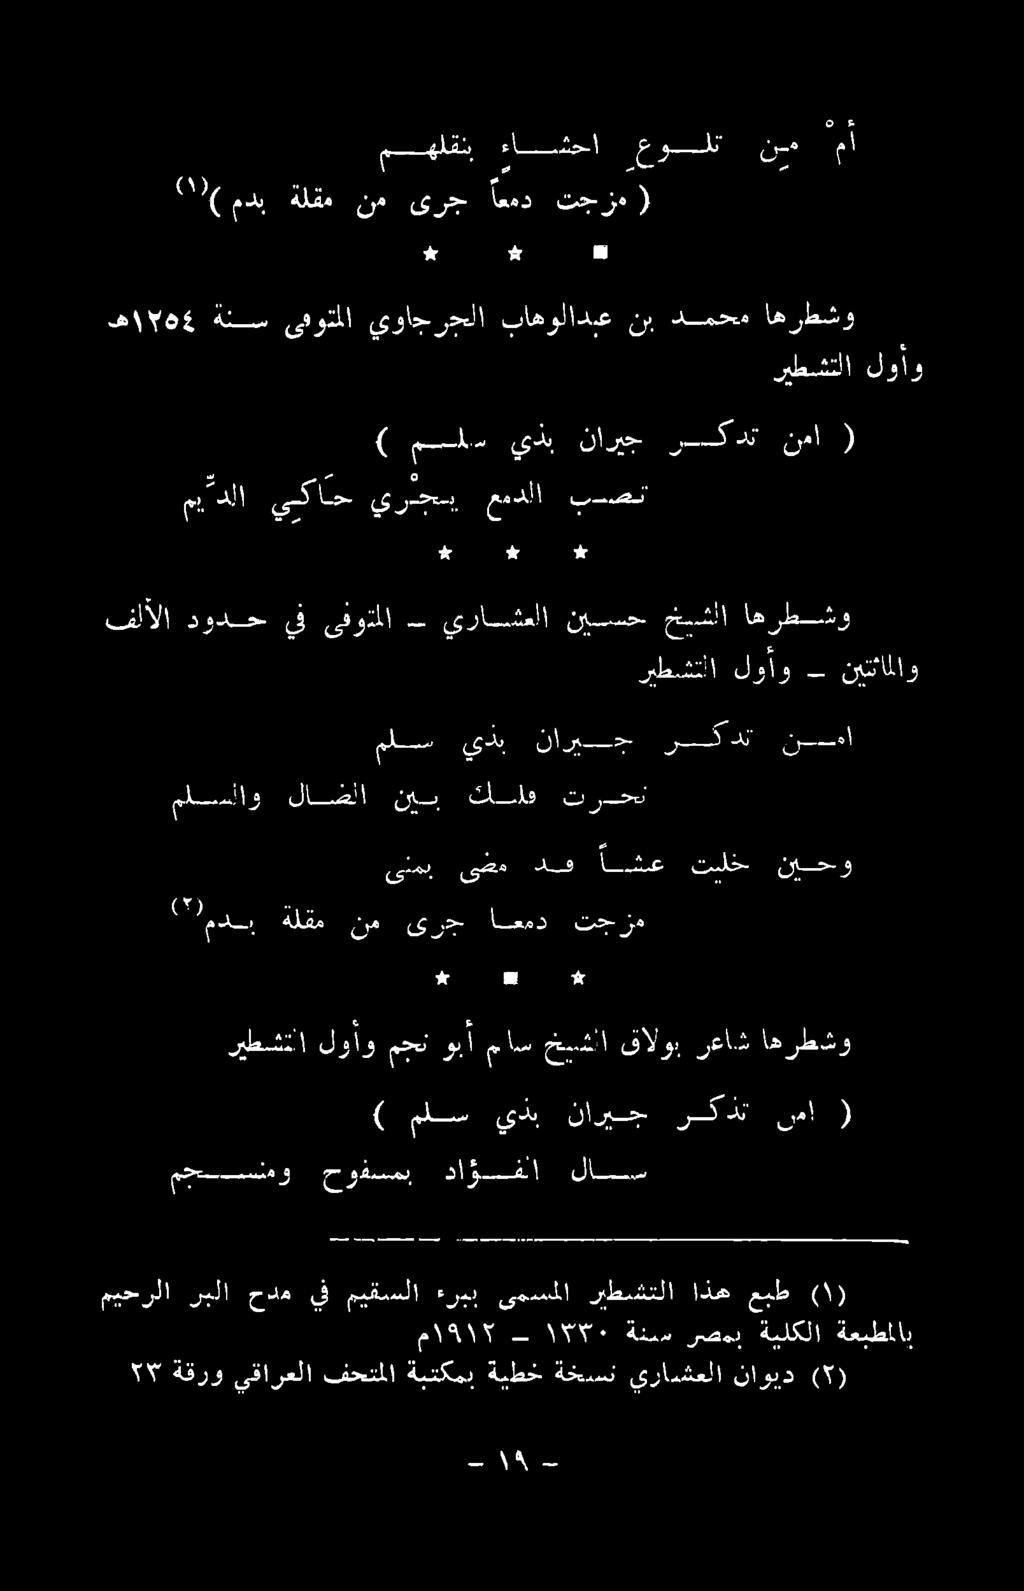 أمْ مِن تلوعِ احشاءٍ بنقلهم
( مزجت دمعاً جرى من مقلة بدم )(١)
وشطرها محمد بن عبدالوهاب الجرجاوي المتوفى سنة ١٢٥٤هـ
وأول التشطير
( امن تدكر جيران بذي سلم )
تصب الدمع يجْري حَاكِي الدِّيم
وشطرها الشيخ حسين العشاري - المتوفى في حدود الألف
والمائتين - وأول التشطير
امن تدكر جيران بذي سلم
نحرت قلبك بين الضال والسلم
وحين خليت عشاً قد مضى بمنى
مزجت دمعا جرى من مقلة بدم(٢)
وشطرها شاعر بولاق الشيخ سام أبو نجم وأول التشطير
( امن تذكر جيران بذي سلم )
سال الفؤاد بمسفوح ومنسجم
(١) طبع هذا التشطير المسمى ببرء السقيم في مدح البر الرحيم
بالمطبعة الكلية بمصر سنة ١٣٣٠ - ١٩١٢م
(٢) ديوان العشاري نسخة خطية بمكتبة المتحف العراقي ورقة ٢٣
- ١٩ -